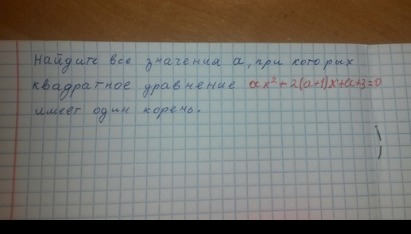 Найдите все значения а, при которых
квадратное уравнение ax²+2(a+1)x+a+3=0
имеет один корень.